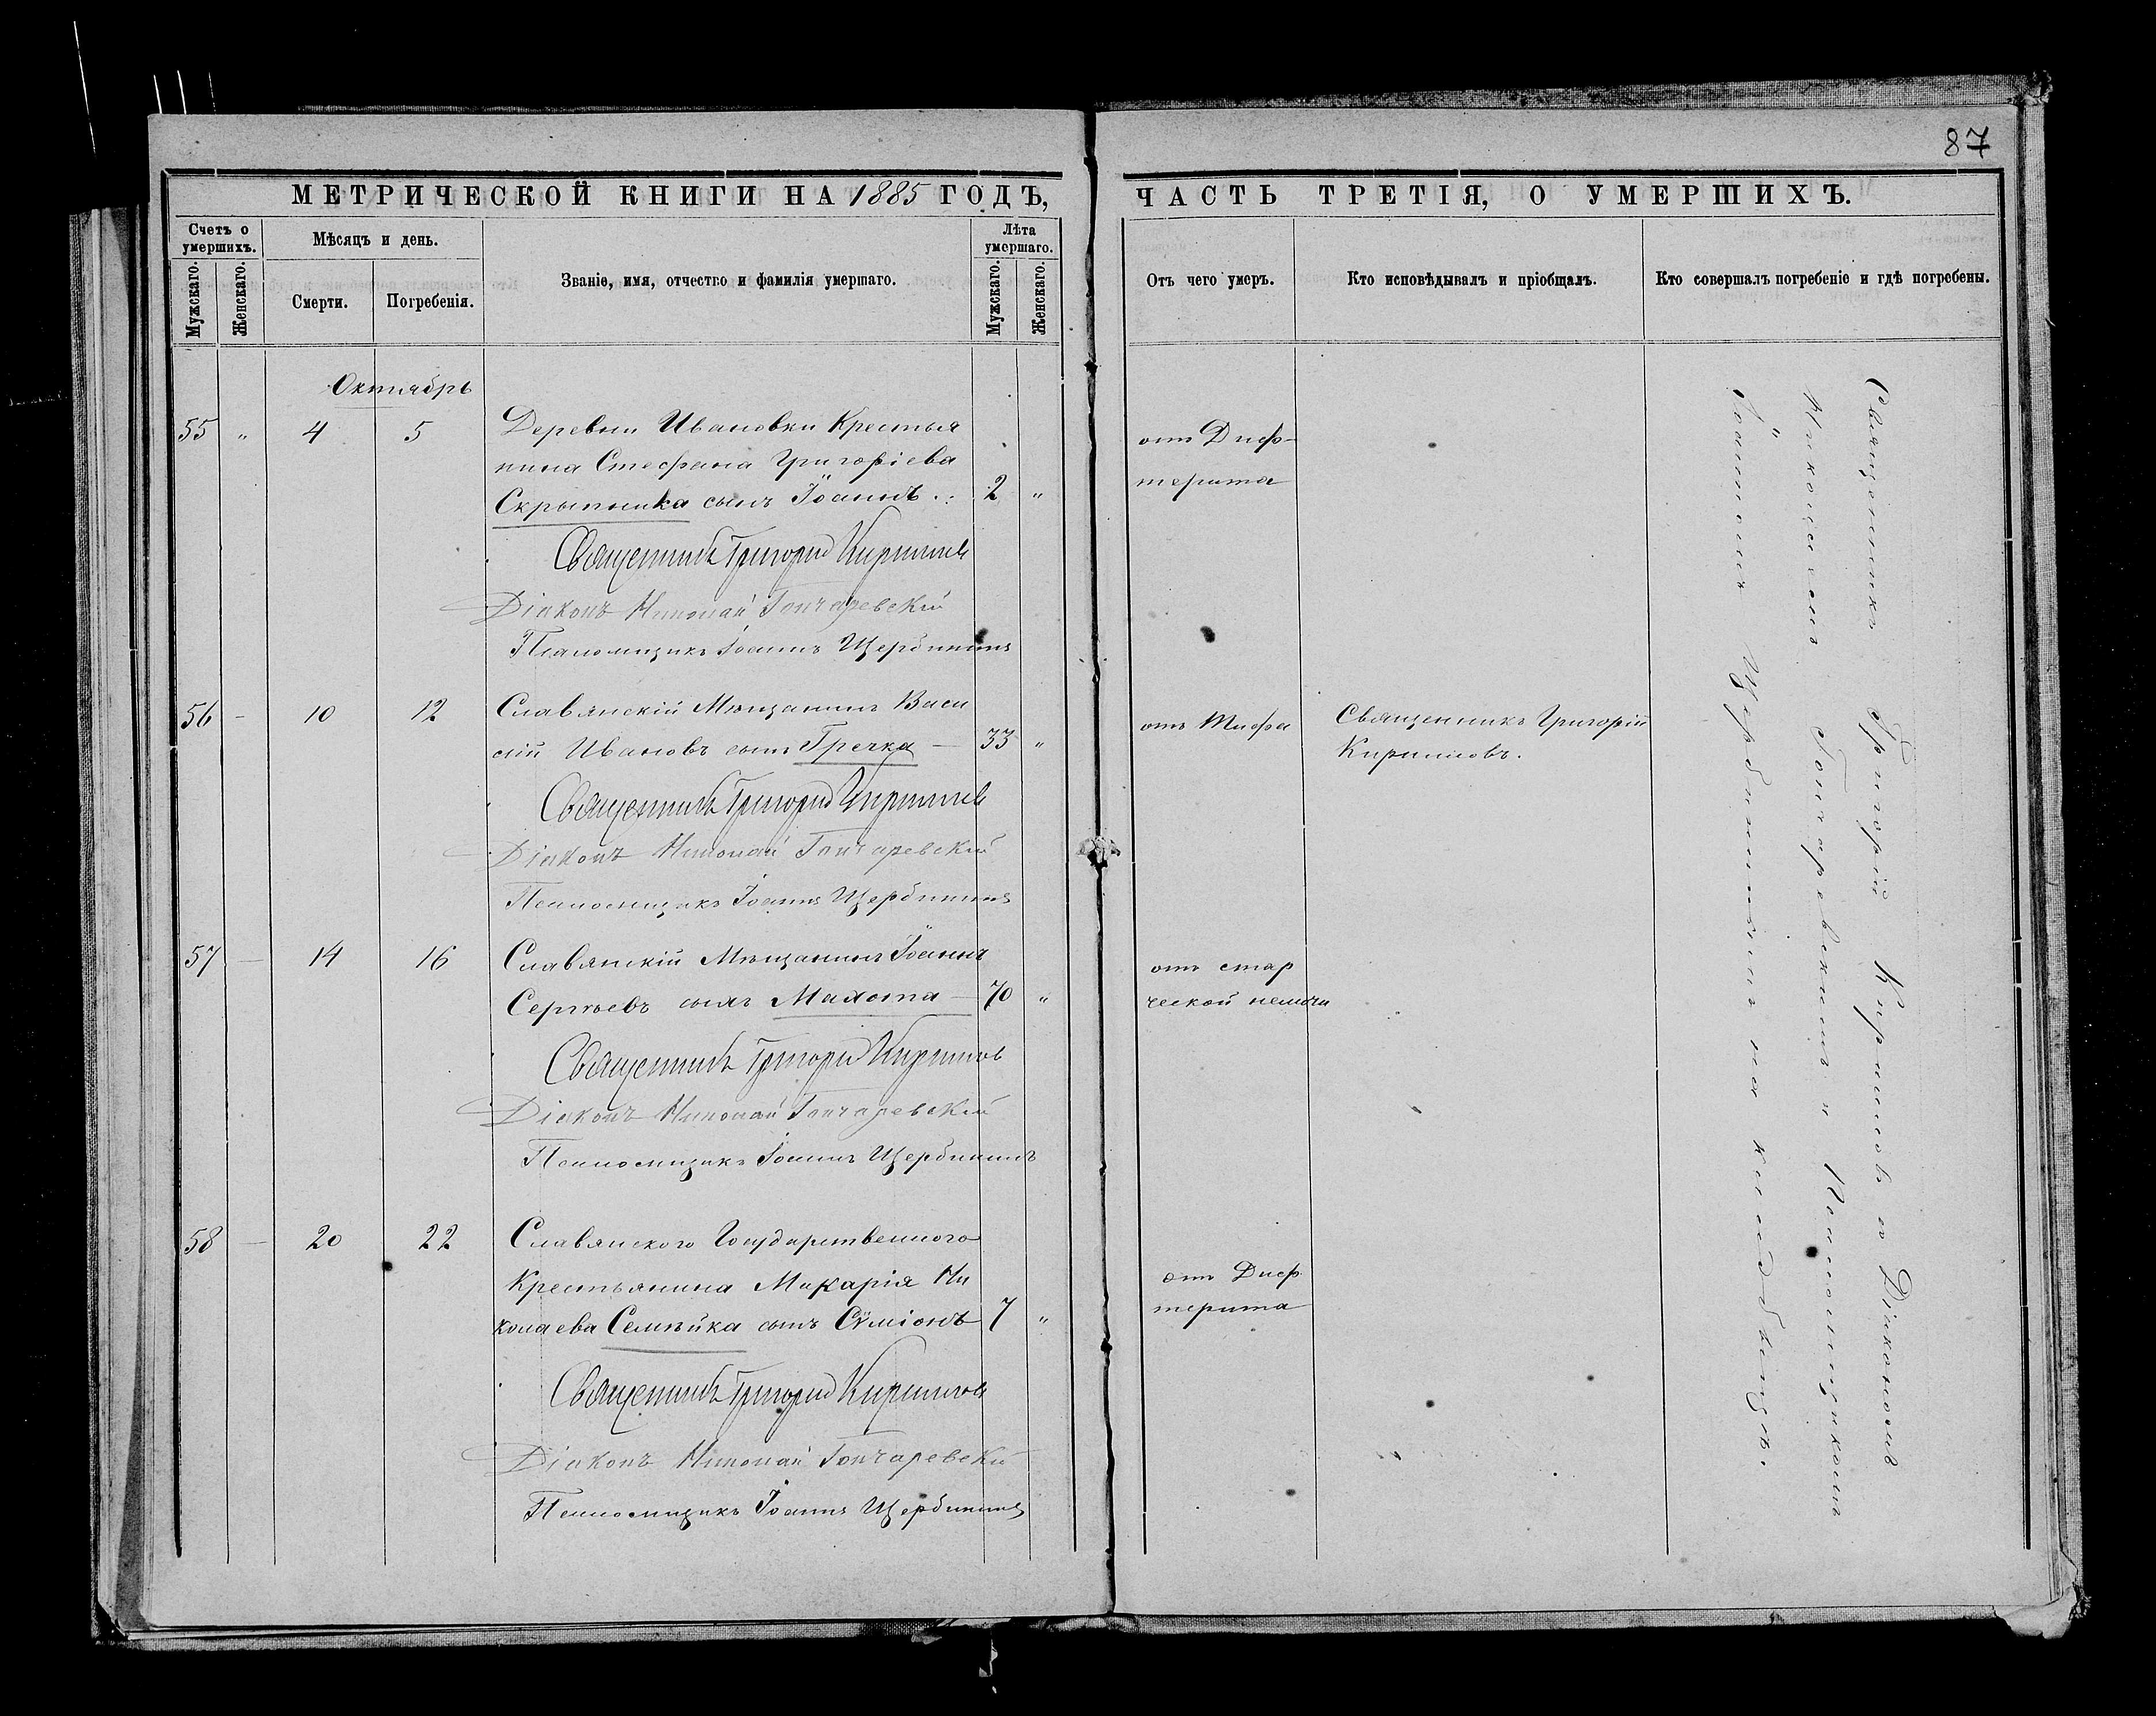 87
МЕТРИЧЕСКОЙ КНИГИ НА 1885 ГОДЪ, ЧАСТЬ ТРЕТІЯ, О УМЕРШИХЪ.
Счетъ о умершихъ.
Мужскаго.
Женскаго.
Мѣсяцъ и день.
Смерти.
Погребенія.
Званіе, имя, отчество и фамилія умершаго.
Лѣта умершаго.
Мужскаго.
Женскаго.
Отъ чего умеръ.
Кто исповѣдывалъ и пріобщалъ.
Кто совершалъ погребеніе и гдѣ погребены.
Октябрь
55 " 4 5 Деревни Ивановки Крестья
нина Стефана Григоріева
Скрыпника сынъ Іоаннъ 2 "
отъ Диф-
терита
Священникъ Григорій Кирилловъ
Діаконъ Николай Гончаревскій
Псаломщикъ Іоаннъ Щербининъ
56 - 10 12 Славянскій Мѣщанинъ Васи
лій Ивановъ сынъ Гречка — 33 "
отъ Тифа
Священникъ Григорій
Кирилловъ.
Священникъ Григорій Кирилловъ
Діаконъ Николай Гончаревскій
Псаломщикъ Іоаннъ Щербининъ
57 — 14 16 Славянскій Мѣщанинъ Іоаннъ
Сергѣевъ сынъ Махота — 70 "
отъ стар
ческой немочи
Священникъ Григорій Кирилловъ
Діаконъ Николай Гончаревскій
Псаломщикъ Іоаннъ Щербининъ
58 — 20 22 Славянского Государственного
Крестьянина Макарія Ни
колаева Семѣйка сынъ Сѵміонъ 7 "
отъ Диф
терита
Священникъ Григорій Кирилловъ
Діаконъ Николай Гончаревскій
Псаломщикъ Іоаннъ Щербининъ
Священникъ Григорій Кирилловъ съ Діакономъ
Николаемъ Гончаревскимъ и Псаломщикомъ
Іоанномъ Щербининымъ на кладбищѣ.